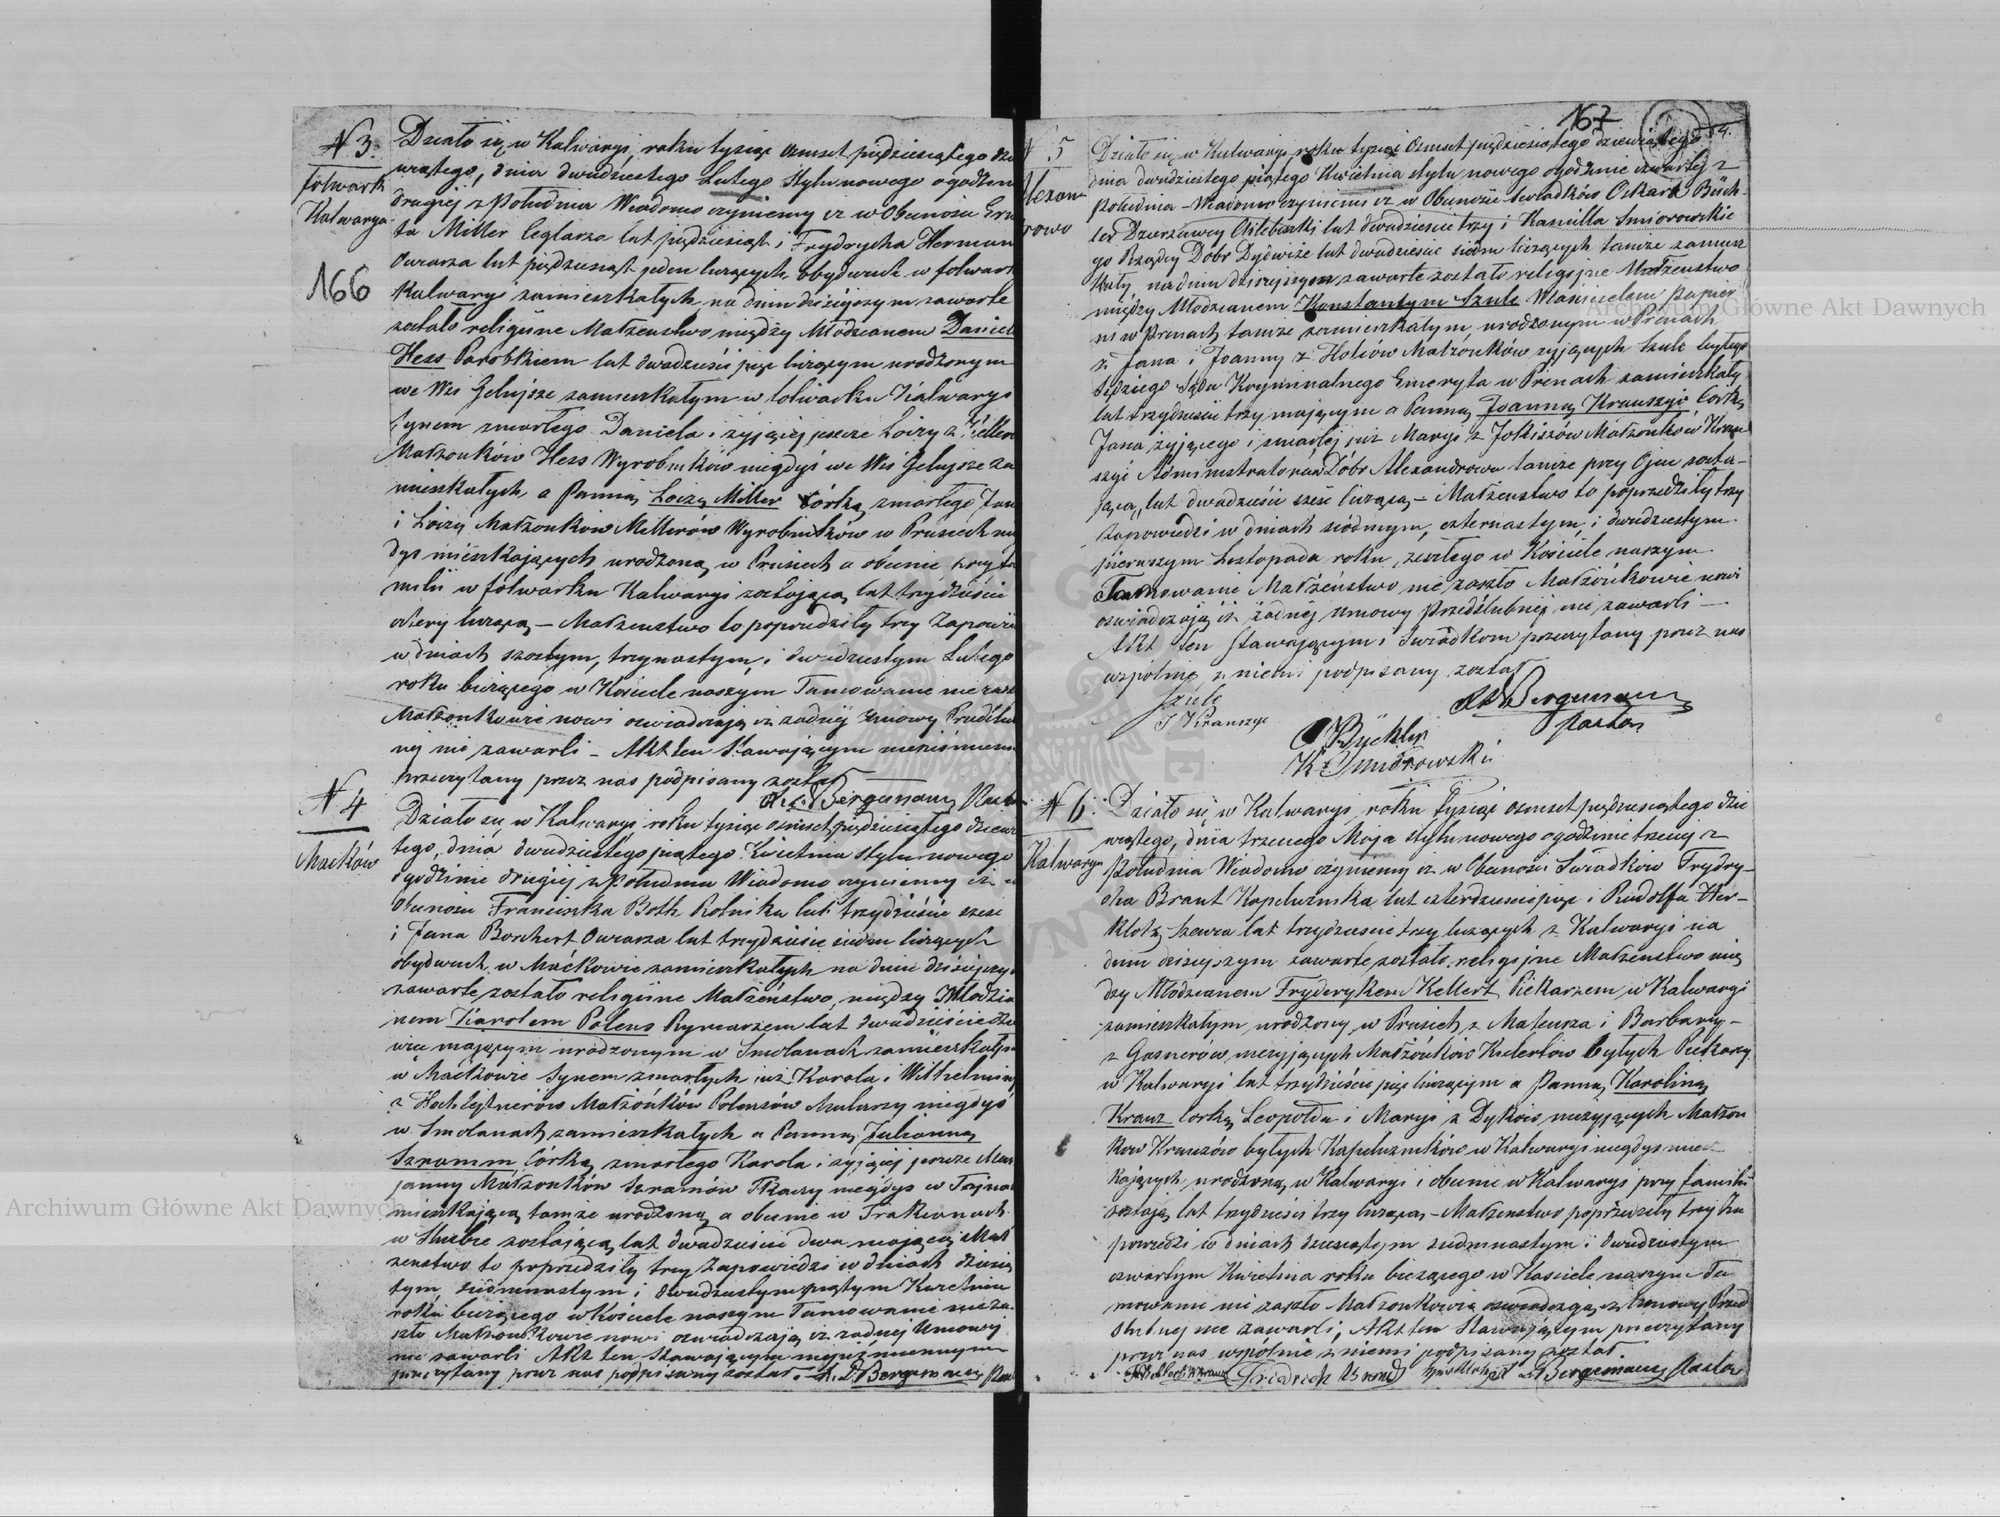 N 3.
Folwark
Kalwarya
166
Działo się w Kalwaryi, roku tysiąc ośmset pięćdziesiątego dzie
wiątego, dnia dwudziestego Lutego stylu nowego o godzinie
drugiej z Południa Wiadomo czyniemy iż w Obecności Ern
ta Miller Ceglarza lat pięćdziesiąt i Frydrycha Herman
Owczarza lat pięćdziesiąt jeden liczących obydwóch w folwark
Kalwaryi zamieszkałych na dniu dzisiejszym zawarte
zostało religijne Małżeństwo między Młodzianem Daniel
Hess Parobkiem lat dwadzieścia pięć liczącym urodzonym
we Wsi Gelujsze zamieszkałym w folwarku Kalwaryi
Synem zmarłego Daniela i żyjącej jeszcze Loizy z
Małżonków Hess Wyrobników niegdyś we Wsi Gelujsze za
mieszkałych, a Panną Loizą Miller Córką zmarłego Jana
i Loizy Małżonków Millerów Wyrobników w Prusiech nie
dys mieszkających urodzoną w Prusiech a obecnie przy fa
milii w folwarku Kalwaryi zostającą lat trzydzieście
cztery liczącą – Małżeństwo to poprzedziły trzy Zapowie
w dniach szóstym, trzynastym, i dwudziestym Lutego
roku bieżącego w Kościele naszym Tamowanie nie zasz
Małżonkowie nowi oświadczają iż żadnej Umowy Przedślu
nej nie zawarli – Akt ten Stawającym niepiśmienn
przeczytany przez nas podpisany został
Bergemann Pastor
N 4
Maćków
Działo się w Kalwaryi roku tysiąc ośmset pięćdziesiątego dziewią
tego, dnia dwudziestego piątego Kwietnia stylu nowego
o godzinie drugiej z Południa Wiadomo czyniemy iż w
Obecności Franciszka Both Rolnika lat trzydzieście sześć
i Jana Borchert Owczarza lat trzydzieście siedm liczących
obydwóch w Maćkowie zamieszkałych na dniu dzisiejszym
zawarte zostało religijne Małżeństwo, między Młodzia
nem Karolem Polens Rymarzem lat dwadzieście
mającym urodzonym w Smolanach zamieszkałym
w Maćkowie Synem zmarłych już Karola i Wilhelminy
z Małżonków Polensów Mularzy niegdyś
w Smolanach zamieszkałych a Panną Julianną
Szramm Córką zmarłego Karola i żyjącej jeszcze Mar
janny Małżonków Szramów Tkaczy niegdyś w
mieszkającą tamże urodzoną a obecnie w Trakianach
w Służbie zostającą lat dwadzieście dwa mającą Mał
żeństwo to poprzedziły trzy Zapowiedzi w dniach dziesią
tym, siedmnastym i dwudziestym piątym Kwietnia
roku bieżącego w Kościele naszym Tamowanie nie za-
szło Małżonkowie nowi oświadczają iż żadnej Umowy
nie zawarli Akt ten Stawającym niepiśmiennym
przeczytany przez nas podpisany został. Bergemann Pas
167
N 5
Alexan
rowo
Działo się w Kalwaryi roku tysiąc ośmset pięćdziesiątego dziewiątego
dnia dwudziestego piątego Kwietnia stylu nowego o godzinie czwartej z
południa – Wiadomo czyniemy iż w Obecności Świadków Oskara Büch-
ler Dzierżawcy lat dwadzieścia trzy i Kamilla Smiorowskie
go Rządcy Dóbr Dydwiże lat dwadzieście siedm liczących tamże zamiesz
kały, na dniu dzisiejszym zawarte zostało religijne Małżeństwo
między Młodzianem Konstantym Szulc Właścicielem Papier
ni w Prenach tamże zamieszkałym, urodzonym w Prenach
z Jana i Joanny z Małżonków żyjących Szulc byłego
Sędziego Sądu Kryminalnego Emeryta w Prenach zamieszkały
lat trzydzieście trzy mającym a Panną Joanną Krauszyc Córką
Jana żyjącego i zmarłej już Maryi z Małżonków Krau
szyc Administratora Dóbr Alexandrowa tamże przy Ojcu zosta-
jącą, lat dwadzieście sześć liczącą – Małżeństwo to poprzedziły trzy
zapowiedzi w dniach siódmym, czternastym, i dwudziestym
pierwszym Listopada roku zeszłego w Kościele naszym
Tamowanie Małżeństwa nie zaszło Małżonkowie nowi
oświadczają iż żadnej Umowy przedślubnej nie zawarli –
Akt ten Stawającym i Świadkom przeczytany przez nas
wspólnie z niemi podpisany został
Szulc
J Krauszyc
Bergemann
Pastor
O Büchler
K. Smiorowski
N 6.
Kalwarya
Działo się w Kalwaryi, roku tysiąc ośmset pięćdziesiątego dzie
wiątego, dnia trzeciego Maja stylu nowego o godzinie trzeciej z
Południa Wiadomo czyniemy iż w Obecności Świadków Frydry-
cha Brant Kapelusznika lat czterdzieście pięć i Rudolfa Her-
klotz Szewca lat trzydzieście trzy liczących z Kalwaryi na
dniu dzisiejszym zawarte zostało religijne Małżeństwo mię
dzy Młodzianem Fryderykem Kellert Piekarzem w Kalwaryi
zamieszkałym urodzony w Prusiech z Mateusza i Barbary –
z Gasnerów nieżyjących Małżonków Kelertów byłych Piekarzy
w Kalwaryi lat trzydzieście pięć liczącym a Panną Karoliną
Krauz Córką Leopolda i Maryi z Dyków nieżyjących Małżon
ków Krauzów byłych Kapeluszników w Kalwaryi niegdyś miesz
kających, urodzoną w Kalwaryi i obecnie w Kalwaryi przy familii
zostają lat trzydzieści trzy liczącą – Małżeństwo poprzedziły trzy Za
powiedzi w dniach dziesiątym siedmnastym i dwudziestym
czwartym Kwietnia roku bieżącego w Kościele naszym Ta
mowanie nie zaszło Małżonkowie oświadczają iż Umowy Przed
ślubnej nie zawarli, Akt ten Stawającym przeczytany
przez nas wspólnie z niemi podpisany został.
Friedrich Brand Bergemann Pastor
Archiwum Główne Akt Dawnych
Archiwum Główne Akt Dawnych